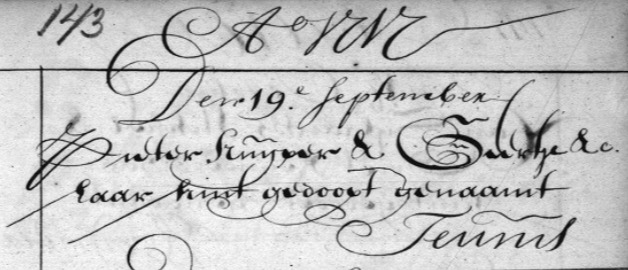 143 Aº 1717
Den 19.e September
Pieter Kuÿper & Geertje &c.
haar kint gedoopt genaamt
Teunis